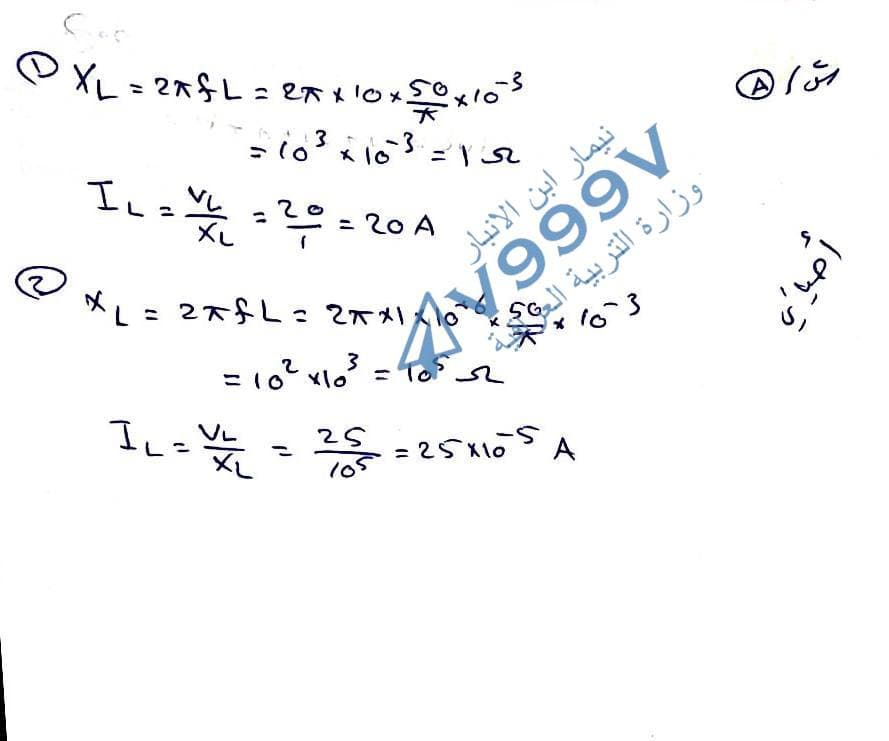 ① X_L = 2πfL = 2π × 10 × 50/π × 10⁻³
س١/ Ⓐ
= 10³ × 10⁻³ = 1 Ω
I_L = V_L/X_L = 20/1 = 20 A
② X_L = 2πfL = 2π × 1 × 10⁻⁶ × 50/π × 10⁻³
= 10² × 10³ = 10⁵ Ω
I_L = V_L/X_L = 25/10⁵ = 25 × 10⁻⁵ A
نيمار ابن الانبار
4V999V
وزارة التربية العراقية